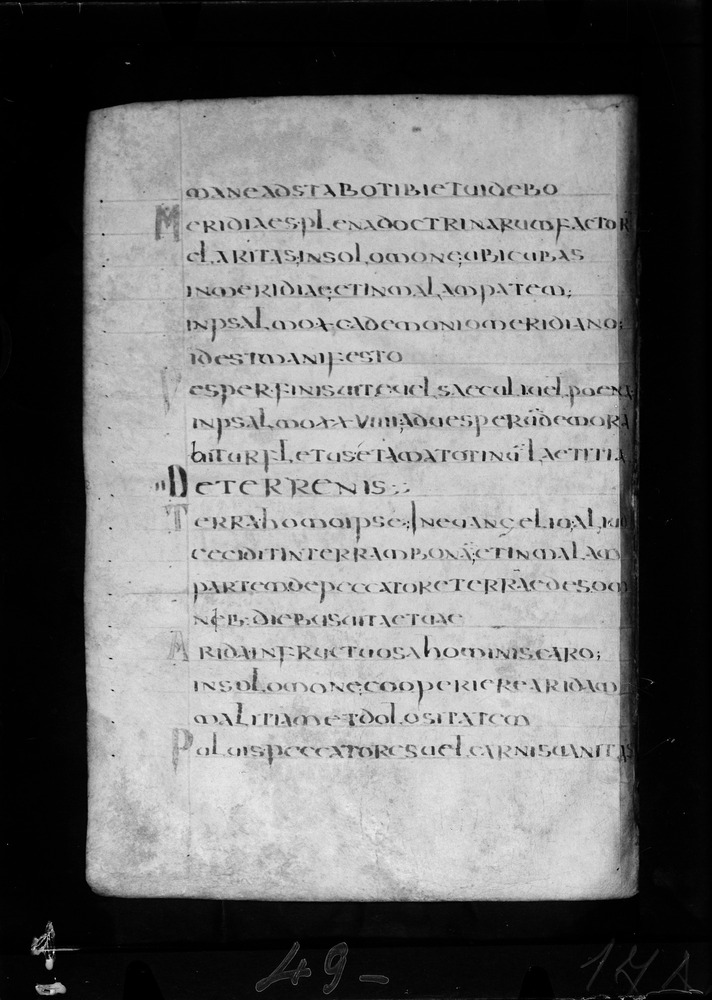 mane adstabo tibi et uidebo
Meridiaes plena doctrinarum factor
claritas in solomone; ubi cubas
in meridiae; et in malam patem;
in psalmo xc a demonio meridiano;
id est manifesto
Vesper finis uitae uel saeculi uel poena
in psalmo xxviiii ad uesperū demora
bitur fletus et ad matotinū laetitia
De terrenis
Terra homo ipse; In euangelio; aliud
cecidit in terram bonā; et in malam
partem de peccatore terrā edes om
nęb; diebus uitae tuae
Arida infructuosa hominis caro;
in solomone; cooperiere aridam
malitiam et dolositatem
Puluis peccatores uel carnis uanitas
49-